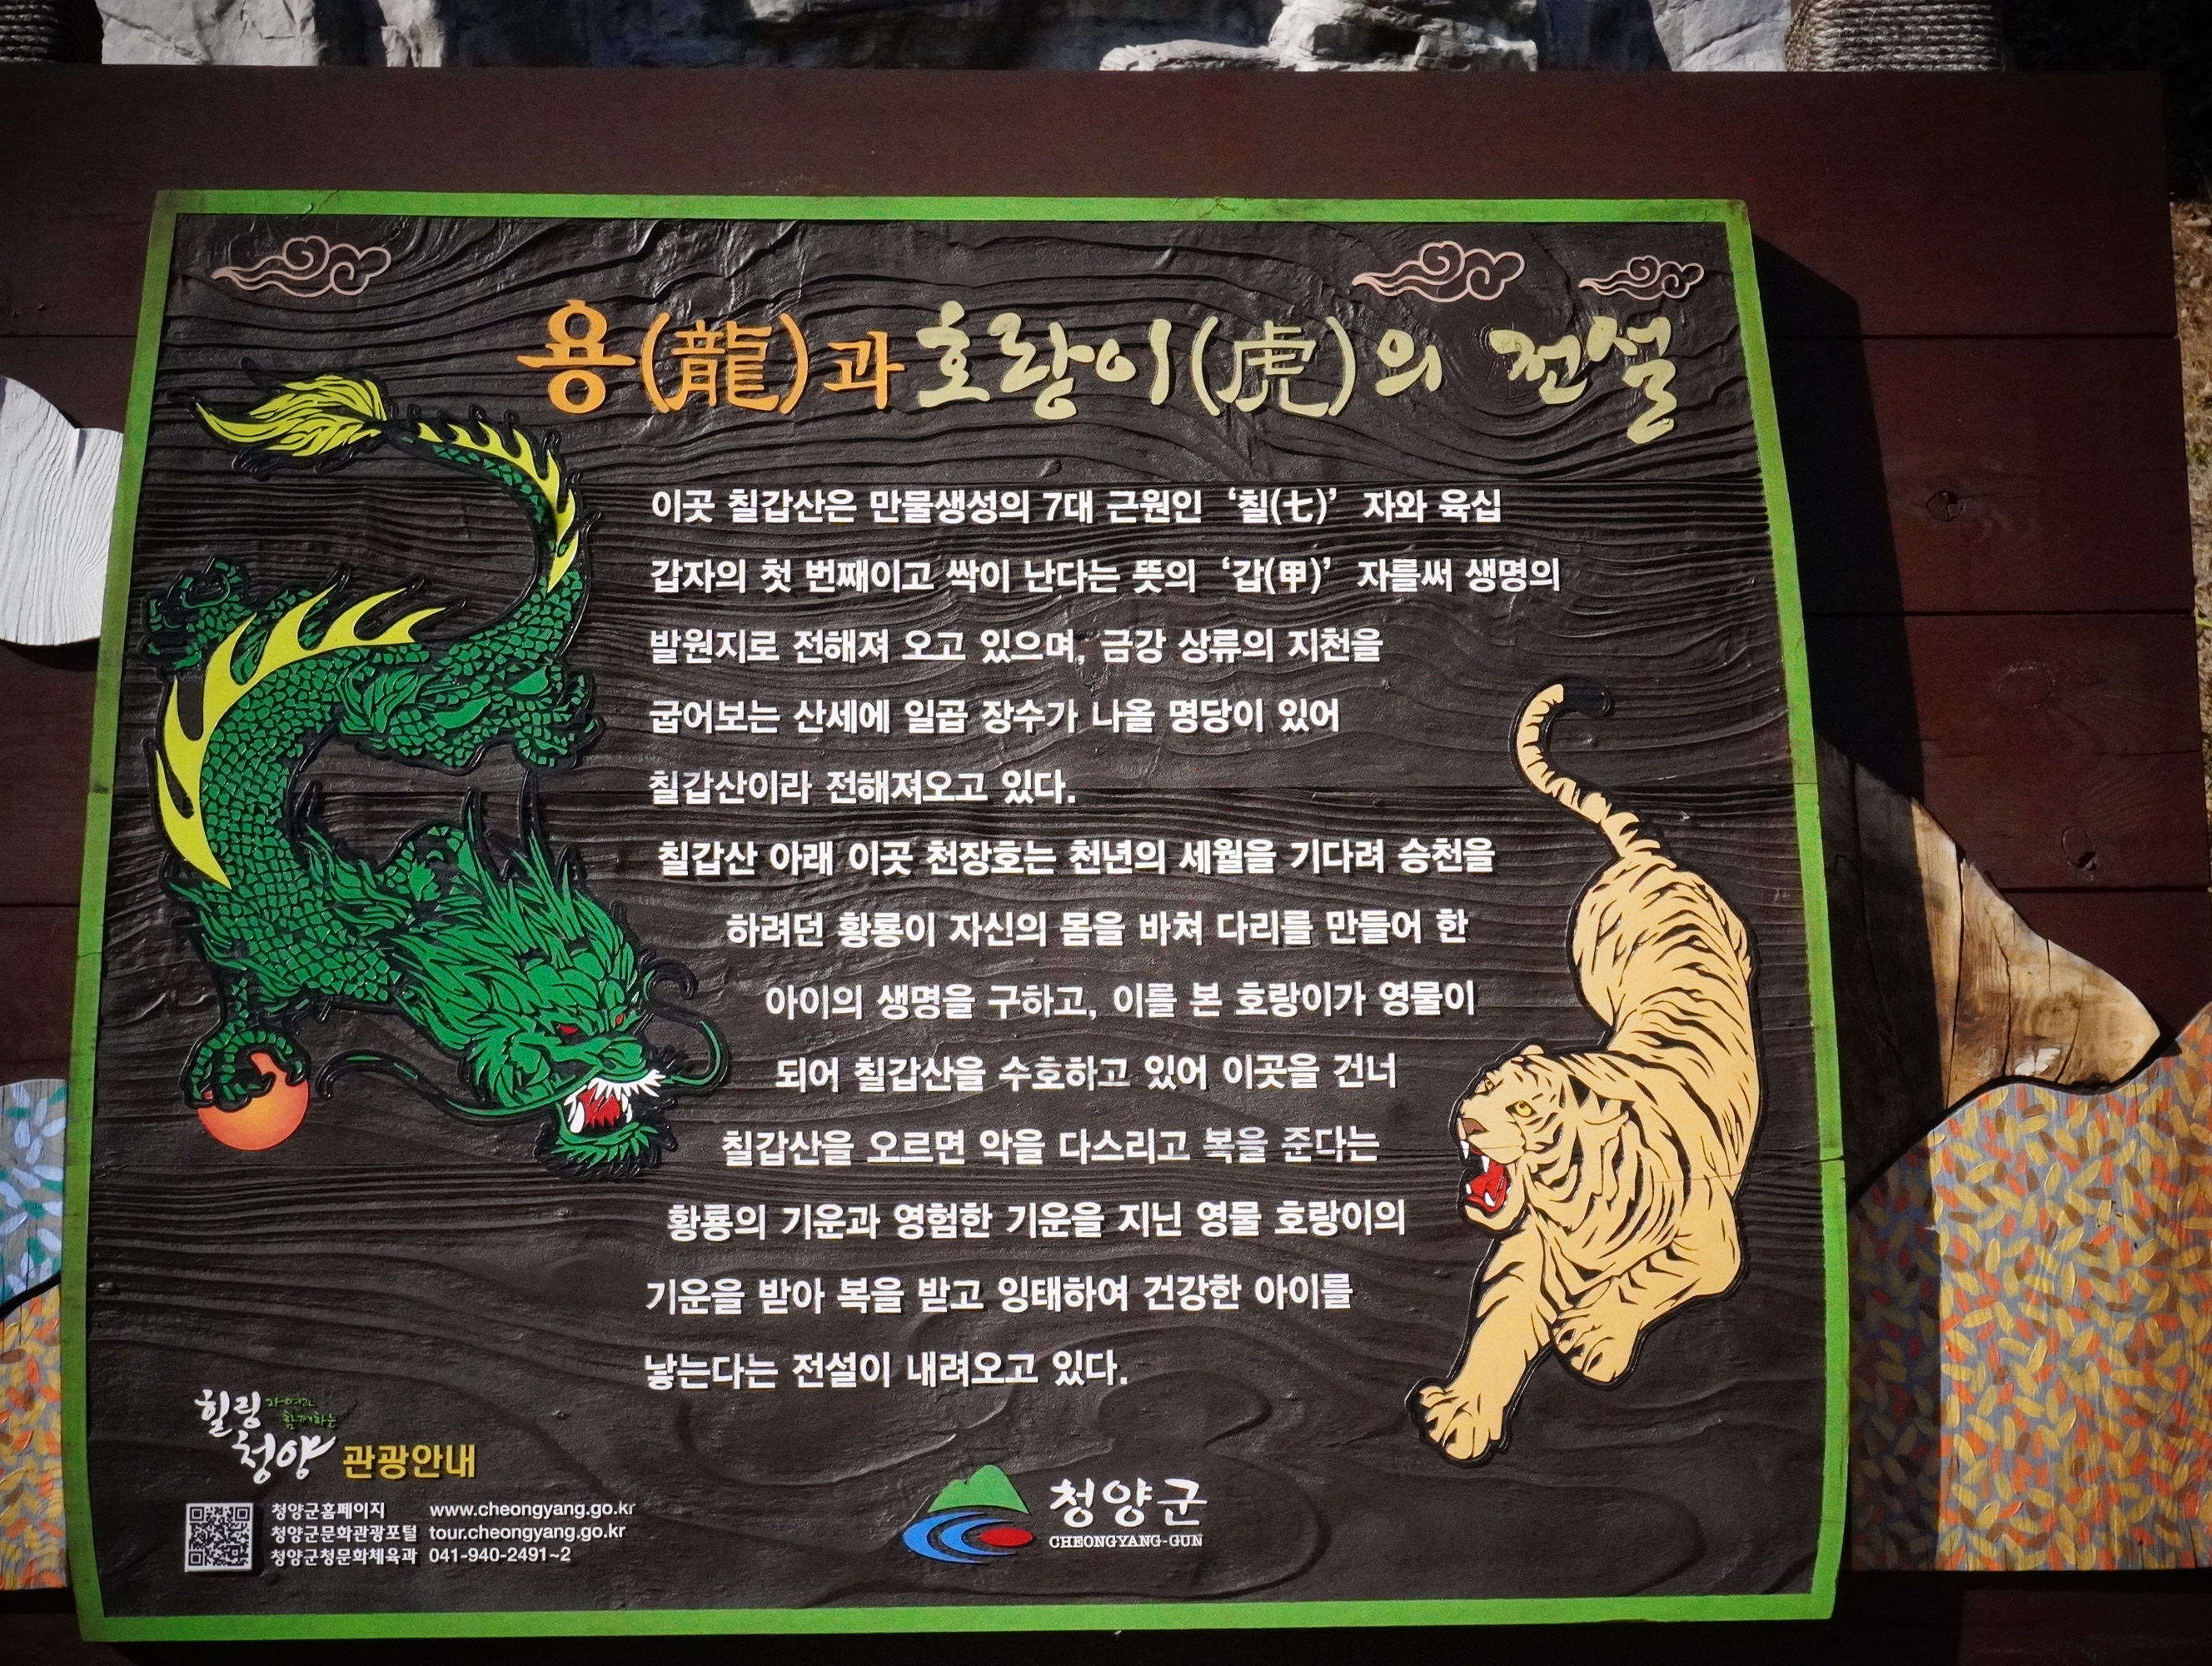 용(龍)과 호랑이(虎)의 전설
이곳 칠갑산은 만물생성의 7대 근원인 ‘칠(七)’ 자와 육십
갑자의 첫 번째이고 싹이 난다는 뜻의 ‘갑(甲)’ 자를써 생명의
발원지로 전해져 오고 있으며, 금강 상류의 지천을
굽어보는 산세에 일곱 장수가 나올 명당이 있어
칠갑산이라 전해져오고 있다.
칠갑산 아래 이곳 천장호는 천년의 세월을 기다려 승천을
하려던 황룡이 자신의 몸을 바쳐 다리를 만들어 한
아이의 생명을 구하고, 이를 본 호랑이가 영물이
되어 칠갑산을 수호하고 있어 이곳을 건너
칠갑산을 오르면 악을 다스리고 복을 준다는
황룡의 기운과 영험한 기운을 지닌 영물 호랑이의
기운을 받아 복을 받고 잉태하여 건강한 아이를
낳는다는 전설이 내려오고 있다.
힐링 자연과 함께하는
청양 관광안내
청양군홈페이지 www.cheongyang.go.kr
청양군문화관광포털 tour.cheongyang.go.kr
청양군청문화체육과 041-940-2491~2
청양군
CHEONGYANG-GUN